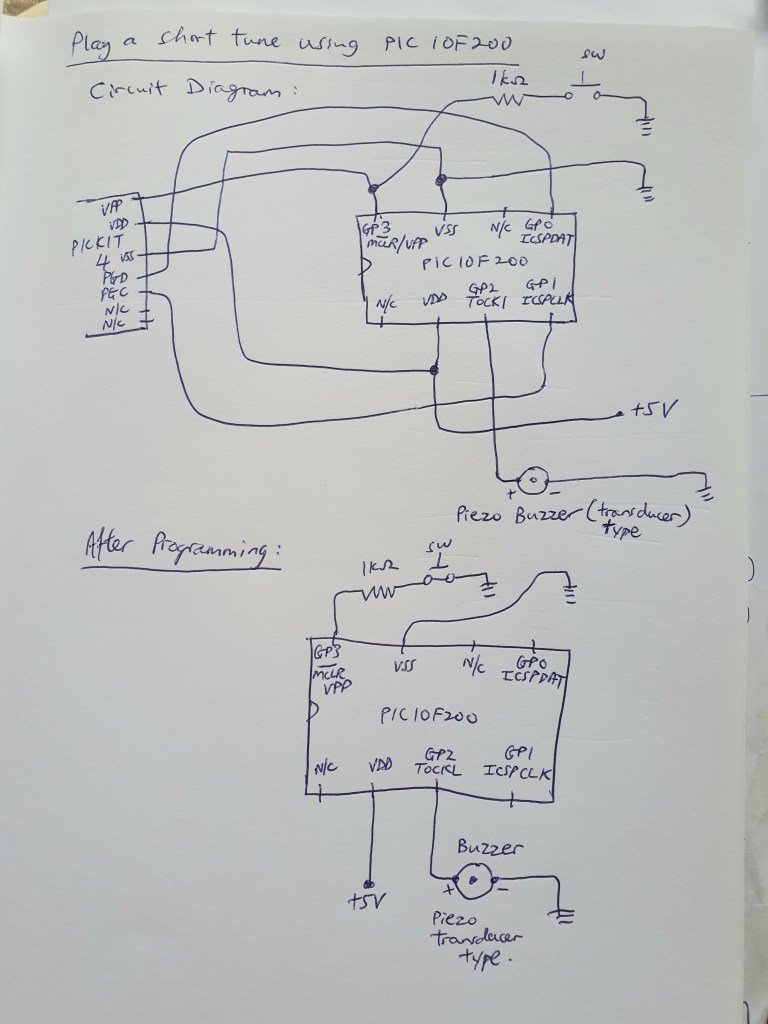 Play a short tune using PIC 10F200
Circuit Diagram:
SW
1kΩ
VPP
VDD
PICKIT
4 VSS
PGD
PGC
N/C
N/C
GP3 VSS N/C GP0
MCLR/VPP ICSPDAT
PIC 10F200
N/C VDD GP2 GP1
TOCK1 ICSPCLK
+5V
+ -
Piezo Buzzer (transducer)
type
After Programming:
SW
1kΩ
GP3 VSS N/C GP0
MCLR ICSPDAT
VPP
PIC10F200
N/C VDD GP2 GP1
TOCKL ICSPCLK
Buzzer
+ -
+5V
Piezo
transducer
type.